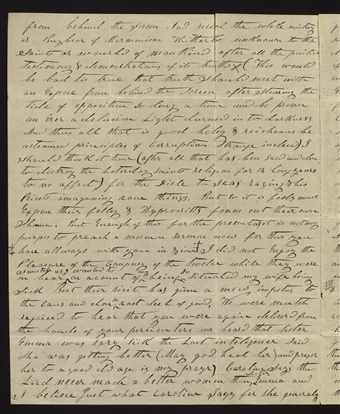 from behind the Screen And reveal the whole mistery
or Kingdom of Mormonism Hitherto unknown to the
Saints or world of mankind after all the positive
testimony & demonstrations of its truths (This would
be bad to hear that truth should meet with
an Expose from behind the Screen after allowing the
tide of opposition so long a time and be proven
an Error a delusive Light turned in to darkness
And thus all that is good holy & reicheaus be
principles of Corruption Strange indeed) I
should think it time (after all that has ben said and done
to destroy the Latterday Saints religion for 12 long years
to no affect) for the Dible to stop raging & his
Priests immagining vane things. But so it is fools must
Expose their folley & Hypocrisy fomm out their own
Shame. But Enough of this for the present it is not my
purpos to preach a mormon sermon now for this you
have allways with you in Zion I did not Enjoy the
Pleasure of the Company of the twelve while they were
here on account of being situated my wife being
Sick But their visit has given a new impetus to
the Caus and done a vast deel of good, We were much
rejoiced to hear that you were again delivered from
the hands of your persecuters we heard that Sister
Emma was very Sick the Last inteligence Said
She was getting better (May god heal her and preserve
her to a good old age is my prayr) Caroline Says the
Lord never made a better women than Emma and
I believe Just what Caroline Says for She generaly